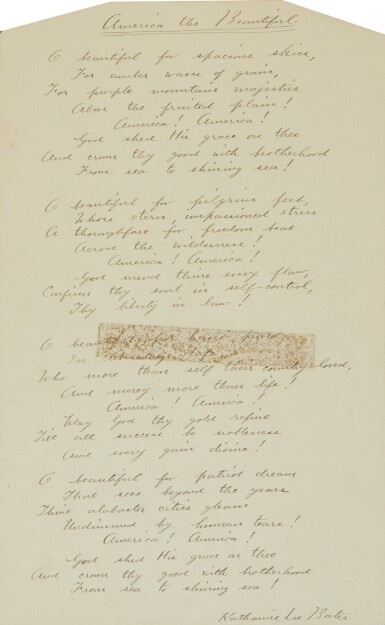 America the Beautiful.
O beautiful for spacious skies,
For amber waves of grain,
For purple mountain majesties
Above the fruited plain!
America! America!
God shed His grace on thee
And crown thy good with brotherhood
From sea to shining sea!
O beautiful for pilgrim feet,
Whose stern, impassioned stress
A thoroughfare for freedom beat
Across the wilderness!
America! America!
God mend thine every flaw,
Confirm thy soul in self-control,
Thy liberty in law!
O beautiful for heroes proved
In liberating strife,
Who more than self their country loved,
And mercy more than life!
America! America!
May God thy gold refine
Till all success be nobleness
And every gain divine!
O beautiful for patriot dream
That sees beyond the years
Thine alabaster cities gleam
Undimmed by human tears!
America! America!
God shed His grace on thee
And crown thy good with brotherhood
From sea to shining sea!
Katharine Lee Bates